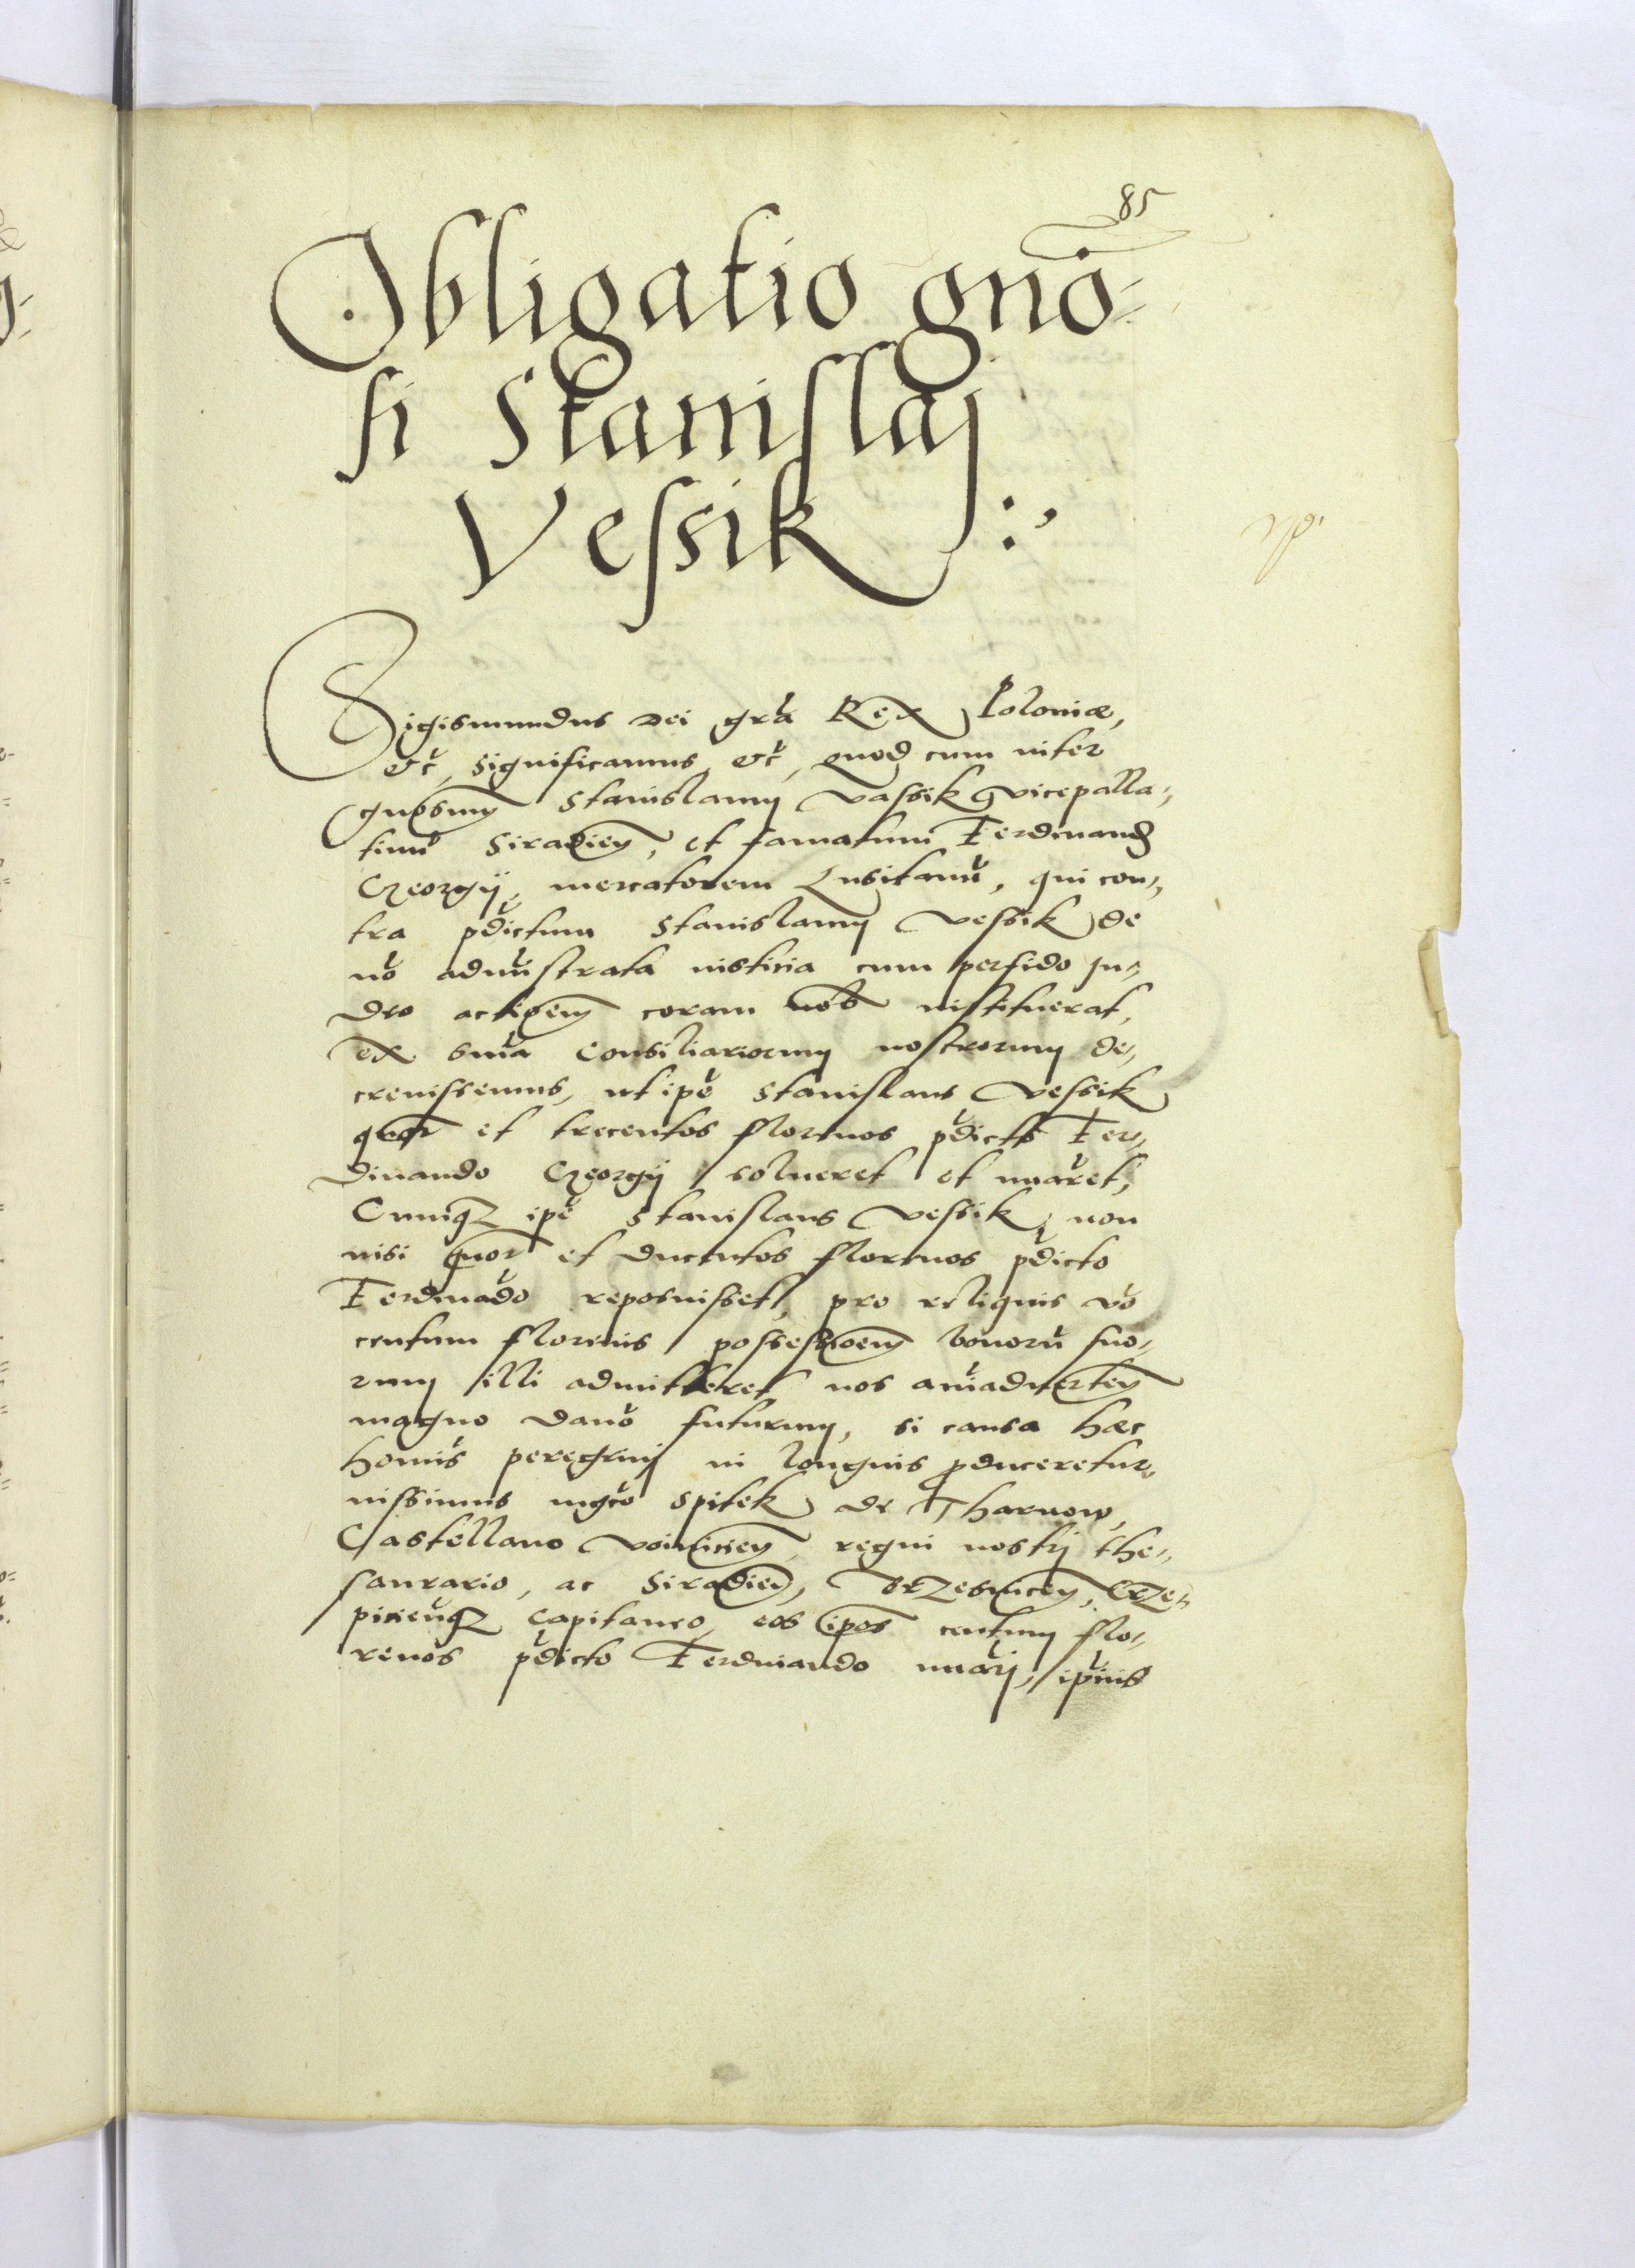 85
Obligatio gn̄o-
si Stanislaj
Vessik :,
Sigismundus Dei gr̃a Rex Poloniæ,
etc̃, significamus, etc̃, quod cum inter
gn̄osum Stanislaum Vassik vicepalla-
tinū Siradien̄, et famatum Ferdinand
Georgij, mercatorem Lusitanū, qui con-
tra p̃dictum Stanislaum Vessik de
nõ adm̃strata iusticia cum perfido Ju-
deo actioem̄ coram nob̃ instituerat,
ex sñia consiliariorum nostrorum de-
crevissemus, ut ip̃e Stanislaus Vessik
quor̃ et trecentos florenos p̃dicto Fer-
dinando Georgij solueret et nũaret,
Cumq3 ip̃e Stanislaus Vessik non
nisi quor̃ et ducentos florenos p̃dicto
Ferdinãdo reposuisset, pro reliquis võ
centum florenis possessioem̄ bonorũ suo-
rum illi admitteret nos aĩadverten̄
magno dam̃o futurum, si causa hæc
homĩs peregrinj in longius produceretur,
iussimus mg̃co Spitek de Tharnow,
Castellano Voiniciem̄, regni nostrj the-
saurario, ac Siradien̄, Brzesnicen̄, Crze-
piciem̃q3 Capitaneo, eos ip̃os centum flo-
renos p̃dicto Ferdinando nũarj, ip̃ius